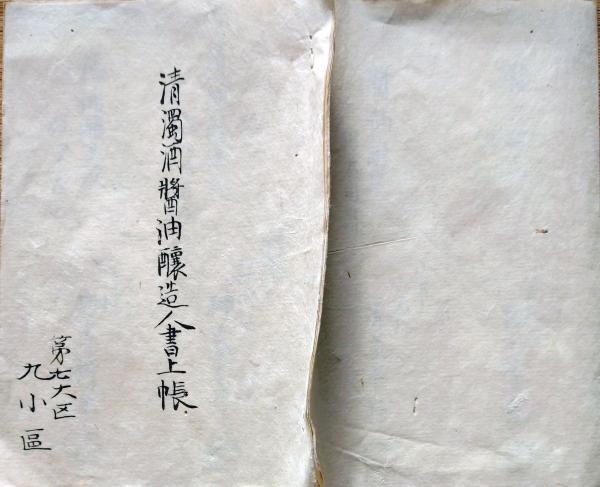 清濁酒醤油釀造人書上帳
第七大区
九小區